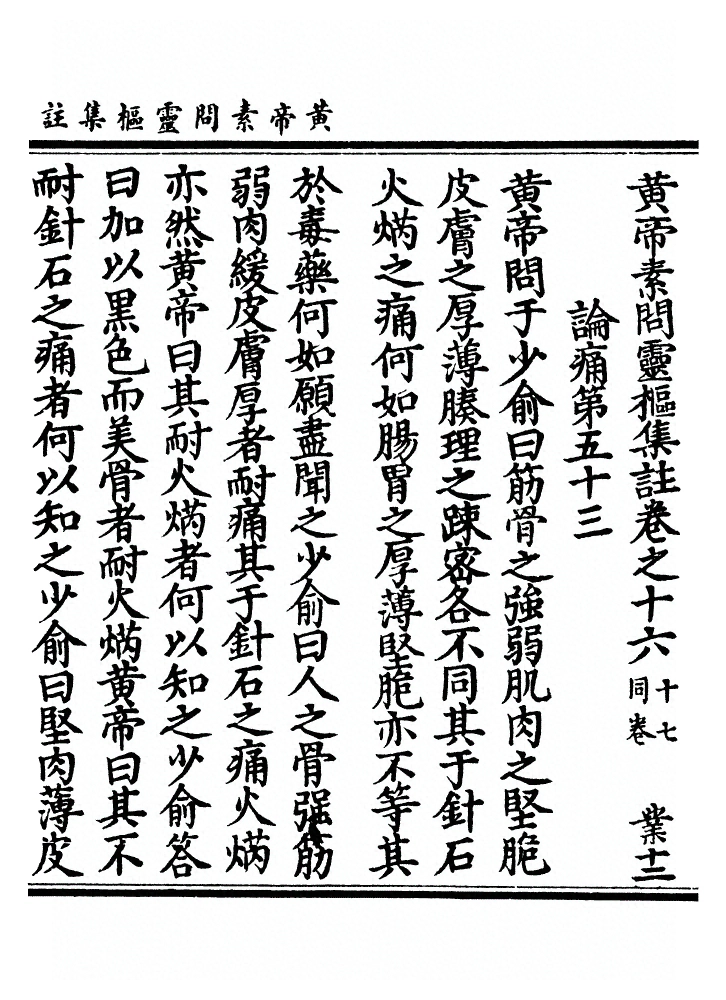 黄帝素問靈樞集註
黄帝素問靈樞集註卷之十六 十七同卷 業十二
論痛第五十三
黄帝問于少俞曰筋骨之強弱肌肉之堅脆
皮膚之厚薄腠理之踈密各不同其于針石
火焫之痛何如腸胃之厚薄堅脆亦不等其
於毒藥何如願盡聞之少俞曰人之骨强筋
弱肉緩皮膚厚者耐痛其于針石之痛火焫
亦然黄帝曰其耐火焫者何以知之少俞答
曰加以黑色而美骨者耐火焫黄帝曰其不
耐針石之痛者何以知之少俞曰堅肉薄皮